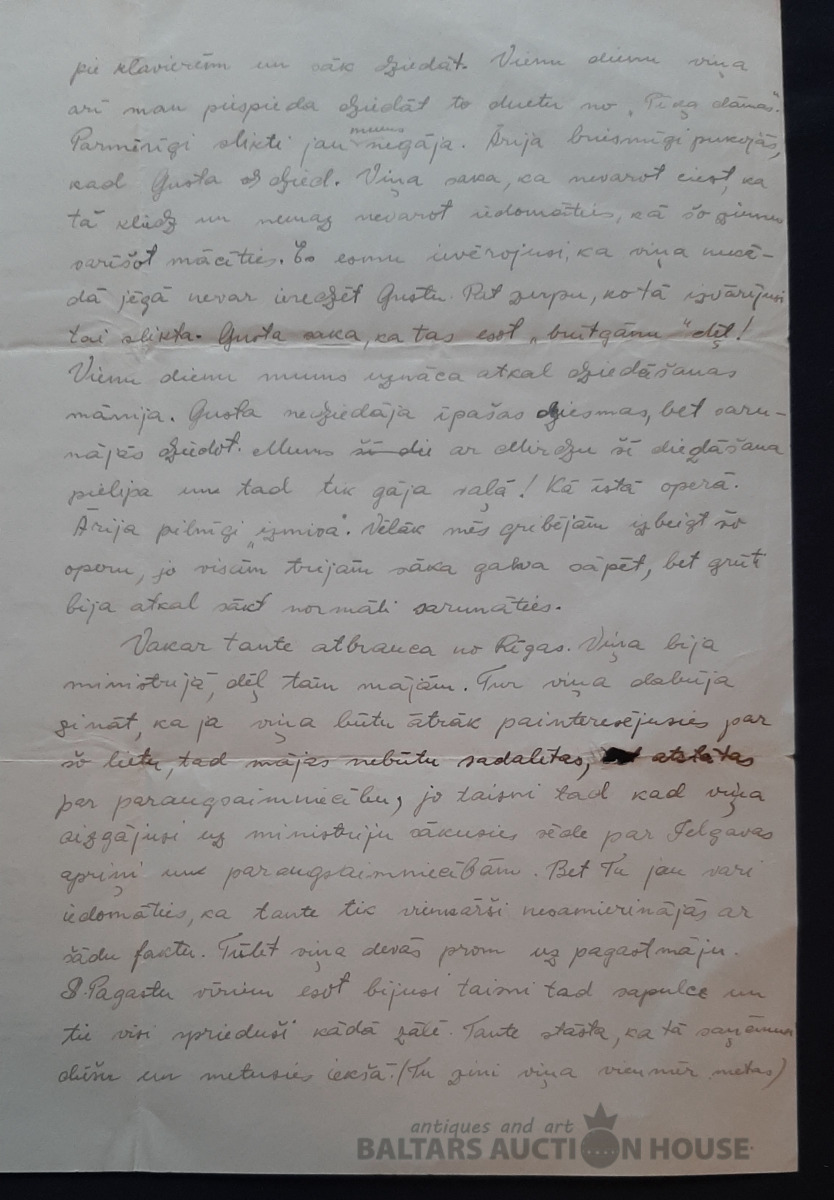 pie klavierēm un sāk dziedāt. Vienu dienu viņa
arī man piespieda dziedāt to duetu no „Pīķa dāmas".
Parmērīgi slikti jau mums negāja. Ārija briesmīgi pukojās,
kad Gusta dzied. Viņa saka, ka nevarot ciest, ka
tā kliedz un nemaz nevarot iedomāties, kā šo ziemu
varēšot mācīties. Es esmu ievērojusi, ka viņa nekā-
dā jēgā nevar ieredzēt Gustu. Pat zupu, ko tā izvārījusi
tai slikta. Gusta saka, ka tas esot „brūtgānu" dēļ!
Vienu dienu mums uznāca atkal dziedāšanas
mānija. Gusta nedziedāja īpašas dziesmas, bet saru-
nājās dziedot. Mums ši die ar Mirdzu šī diedāšana
pielipa un tad tik gāja vaļā! Kā īstā operā.
Ārija pilnīgi „izmisa". Vēlāk mēs gribējām izbeigt šo
operu, jo visām trijām sāka galva sāpēt, bet grūti
bija atkal sākt normāli sarunāties.
Vakar tante atbrauca no Rīgas. Viņa bija
ministrijā, dēļ tām mājām. Tur viņa dabūja
zināt, ka ja viņa būtu ātrāk painteresējusies par
šo lietu, tad mājas nebūtu sadalītas, atstātas
par paraugsaimniecību, jo taisni tad kad viņa
aizgājusi uz ministriju sākusies sēde par Jelgavas
apriņi un paraugsaimniecībām. Bet Tu jau vari
iedomāties, ka tante tik vienkārši nesamierinājās ar
šādu faktu. Tūlīt viņa devās prom uz pagastmāju.
S. Pagastu vīriem esot bijusi taisni tad sapulce un
tie visi sprieduši kādā zālē. Tante stāsta, ka tā saņēmusi
dūšu un metusies iekšā! (Tu zini viņa vienmēr metas)
antiques and art
BALTARS AUCTION HOUSE